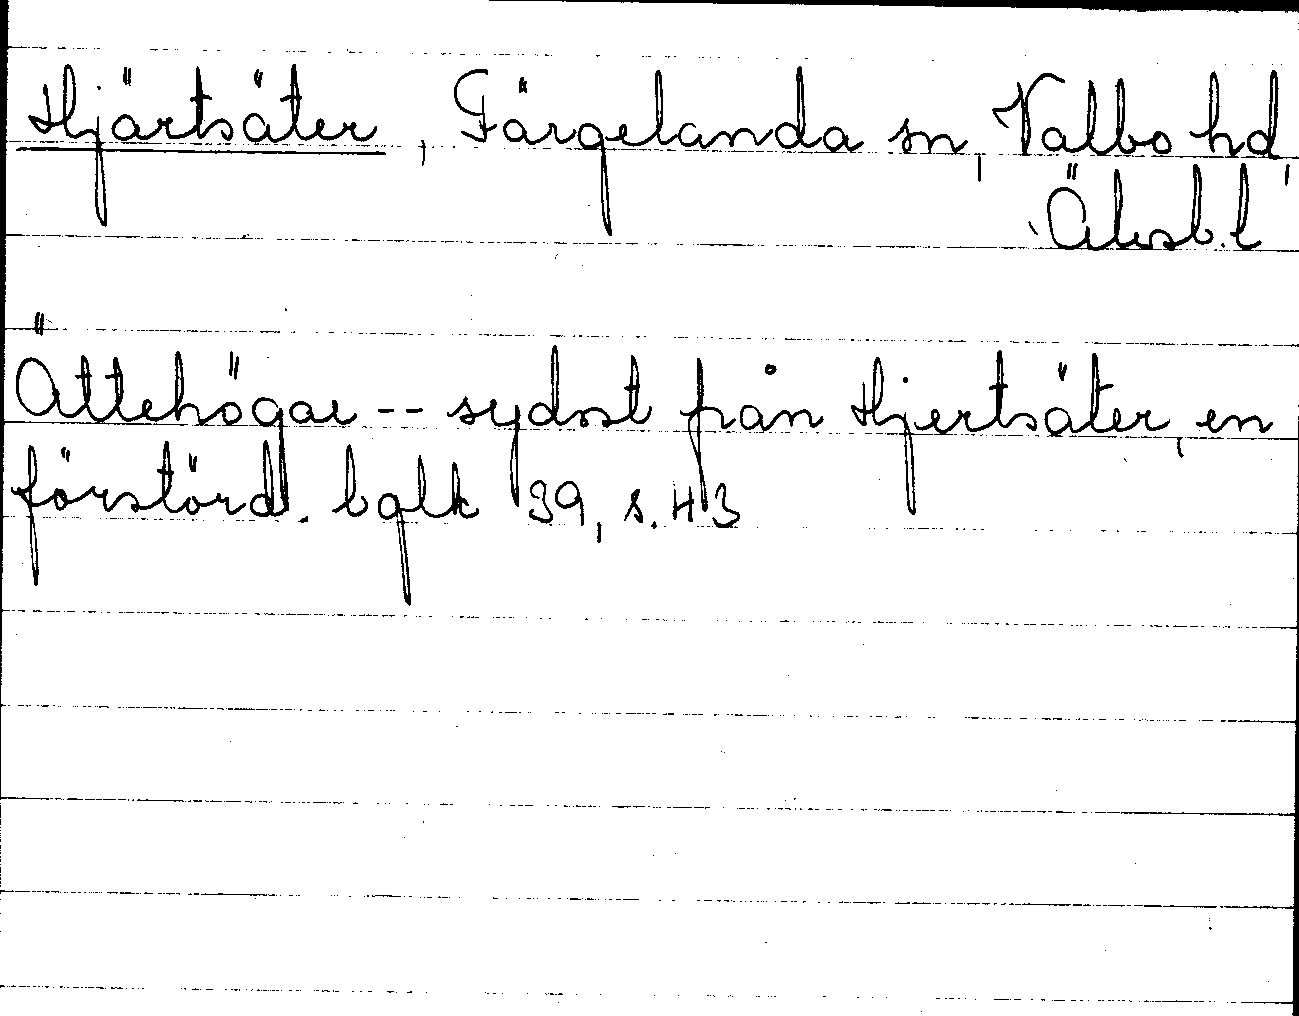 Hjärtsäter, Färgelanda sn, Valbo hd,
Älvsb. l
Ättehögar -- sydost från Hjertsäter, en
förstörd. bglk 39, s. 43